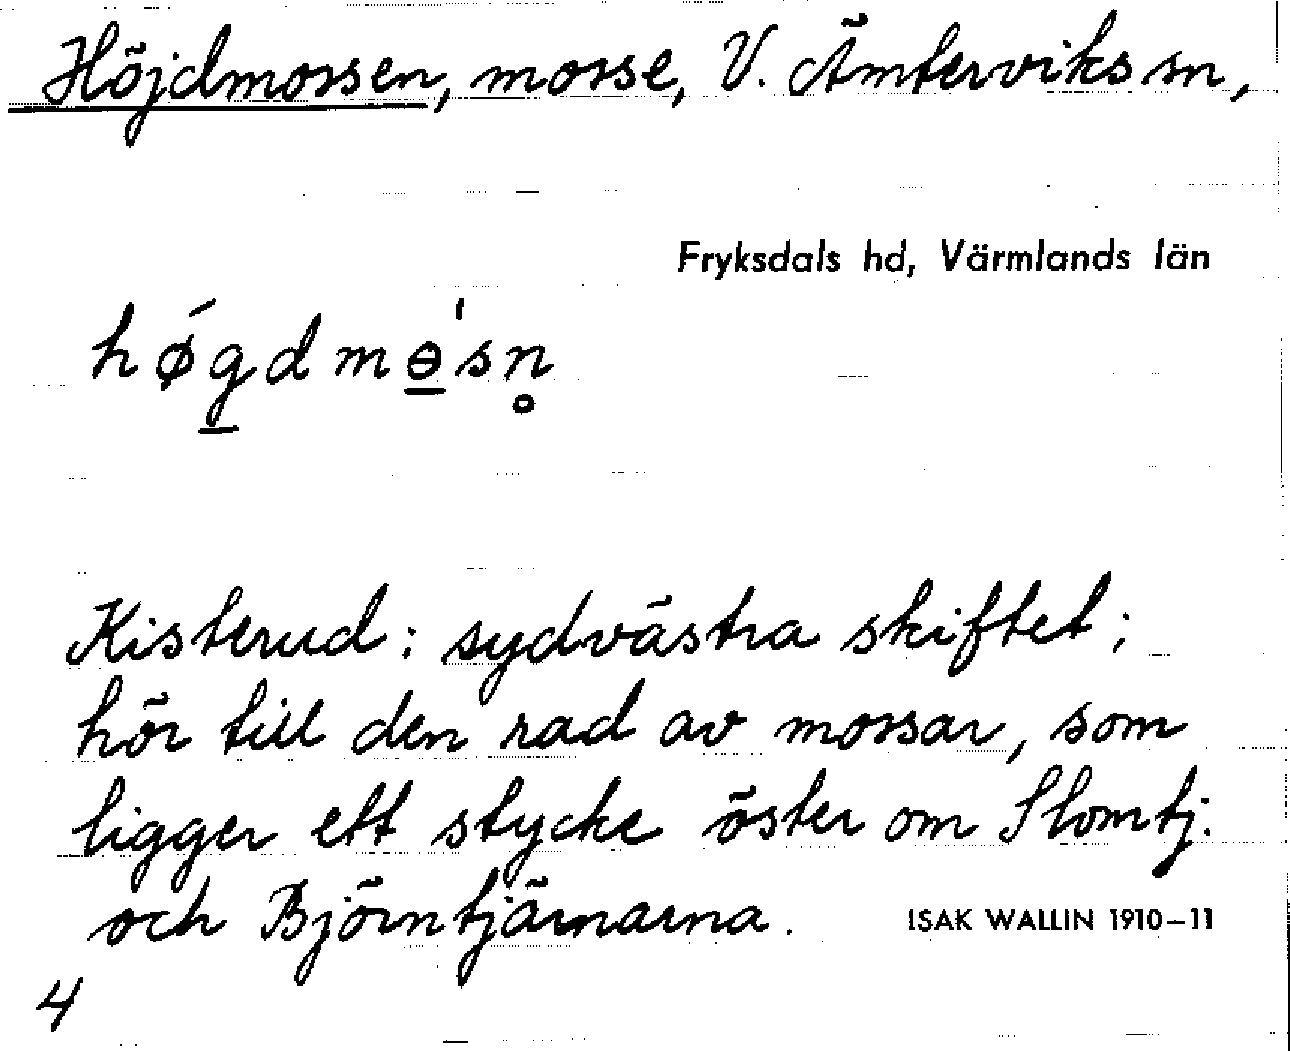 Höjdmossen, mosse, V. Ämterviks sn,
Fryksdals hd, Värmlands län
hǿg̲dmɵ̲'sn̥
Kisterud: sydvästra skiftet;
hör till den rad av mossar, som
ligger ett stycke öster om Slomtj.
och Björntjärnarna.
ISAK WALLIN 1910–11
4